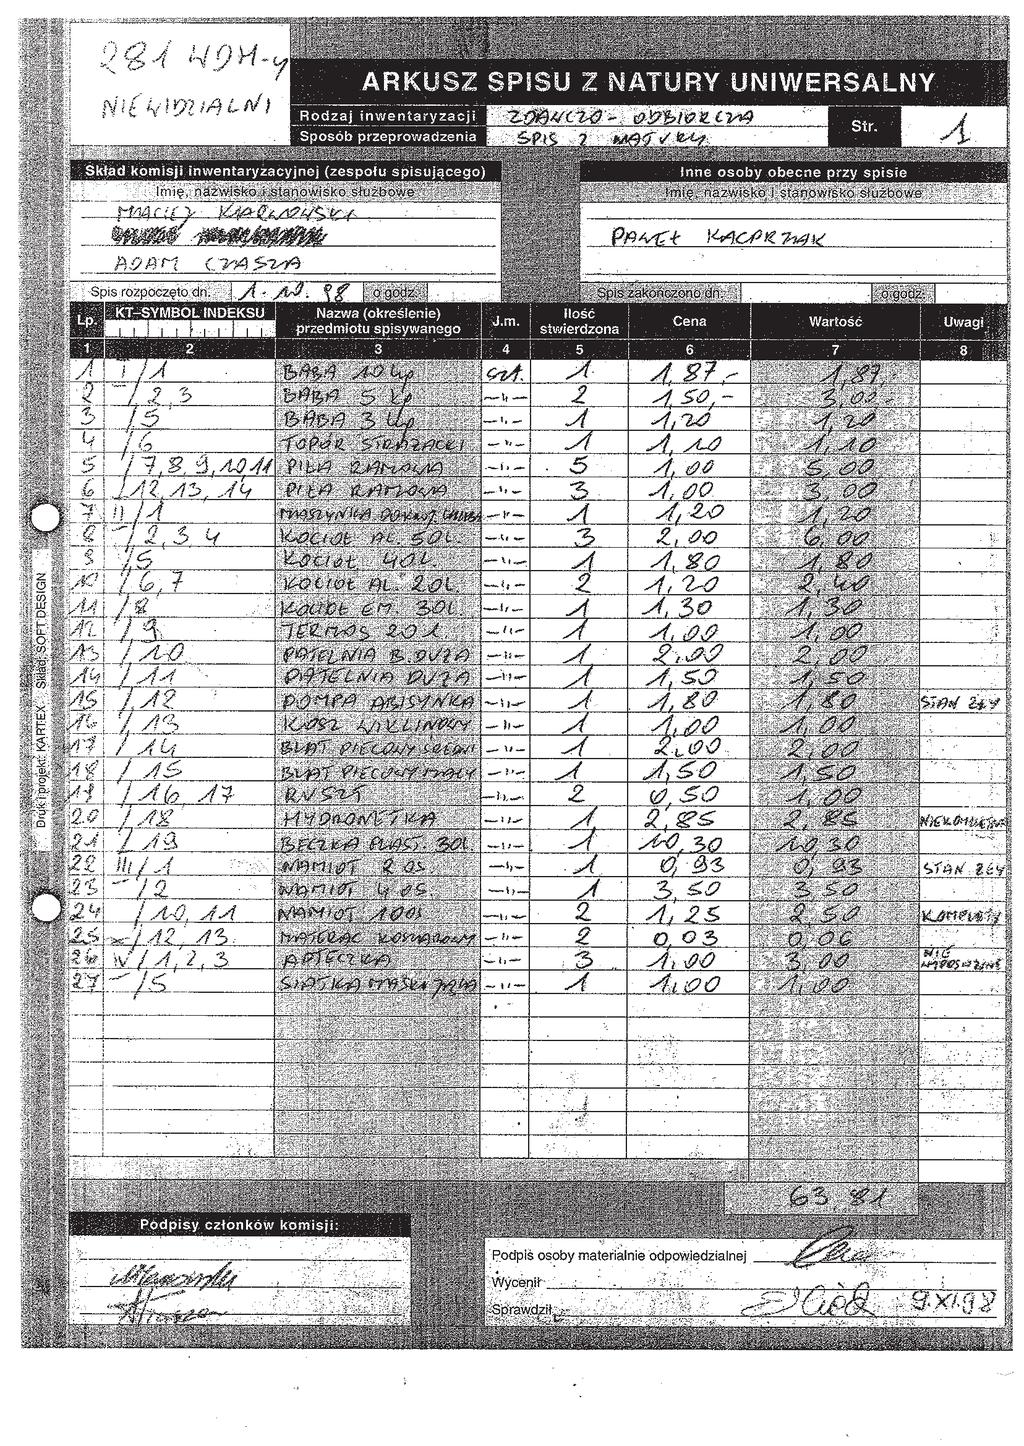 281 WDH-y
NIEWIDZIALNI
ARKUSZ SPISU Z NATURY UNIWERSALNY
Rodzaj inwentaryzacji ZDAWCZO - ODBIORCZA
Sposób przeprowadzenia SPIS Z NATURY
Str. 1
Skład komisji inwentaryzacyjnej (zespołu spisującego)
Imię, nazwisko i stanowisko służbowe
MACIEJ KARWOWSKI
ADAM CZASZA
Inne osoby obecne przy spisie
Imię, nazwisko i stanowisko służbowe
PAWEŁ KACPRZAK
Spis rozpoczęto dn. 1.10.98 o godz.
Spis zakończono dn. o godz.
Lp. KT–SYMBOL INDEKSU Nazwa (określenie) przedmiotu spisywanego J.m. Ilość stwierdzona Cena Wartość Uwagi
1 2 3 4 5 6 7 8
1 I/1 BABA 10 kp szt. 1 1,87,- 1,87,-
2 -/2,3 BABA 5 kp -"- 2 1,50,- 3,00,-
3 /5 BABA 3 kp -"- 1 1,20 1,20
4 /6 TOPÓR STRAŻACKI -"- 1 1,10 1,10
5 /7,8,9,10,11 PIŁA RAMOWA -"- 5 1,00 5,00
6 /12,13,14 PIŁA RAMOWA -"- 3 1,00 3,00
7 II/1 MASZYNKA DO -"- 1 1,20 1,20
8 -/2,3,4 KOCIOŁ AL. 50L. -"- 3 2,00 6,00
9 /5 KOCIOŁ 40L. -"- 1 1,80 1,80
10 /6,7 KOCIOŁ AL. 20L. -"- 2 1,20 2,40
11 /8 KOCIOŁ EM. 30L. -"- 1 1,30 1,30
12 /9 TERMOS 20 l. -"- 1 1,00 1,00
13 /10 PATELNIA B. DUŻA -"- 1 2,00 2,00
14 /11 PATELNIA DUŻA -"- 1 1,50 1,50
15 /12 POMPA ABISYNKA -"- 1 1,80 1,80 STAN ZŁY
16 /13 KOSZ WIKLINOWY -"- 1 1,00 1,00
17 /14 BLAT PIECOWY ŚREDNI -"- 1 2,00 2,00
18 /15 BLAT PIECOWY MAŁY -"- 1 1,50 1,50
19 /16,17 RUSZT -"- 2 0,50 1,00
20 /18 HYDRONETKA -"- 1 2,85 2,85 NIEKOMPLETNA
21 /19 BECZKA PLAST. 30l. -"- 1 10,30 10,30
22 III/1 NAMIOT 2 OS. -"- 1 0,93 0,93 STAN ZŁY
23 -/2 NAMIOT 4 OS. -"- 1 3,50 3,50
24 /10,11 NAMIOT 10 OS -"- 2 1,25 2,50 KOMPLETY
25 /12,13. MATERAC KOSZAROWY -"- 2 0,03 0,06
26 IV/1,2,3 APTECZKA -"- 3 1,00 3,00 NIE WYPOSAŻONE
27 -/5 SIATKA MASKUJĄCA -"- 1 1,00 1,00
63,81
Podpisy członków komisji:
Podpis osoby materialnie odpowiedzialnej
Wycenił
Sprawdził 9.XI.98
Druk i projekt: KARTEX Skład: SOFT DESIGN